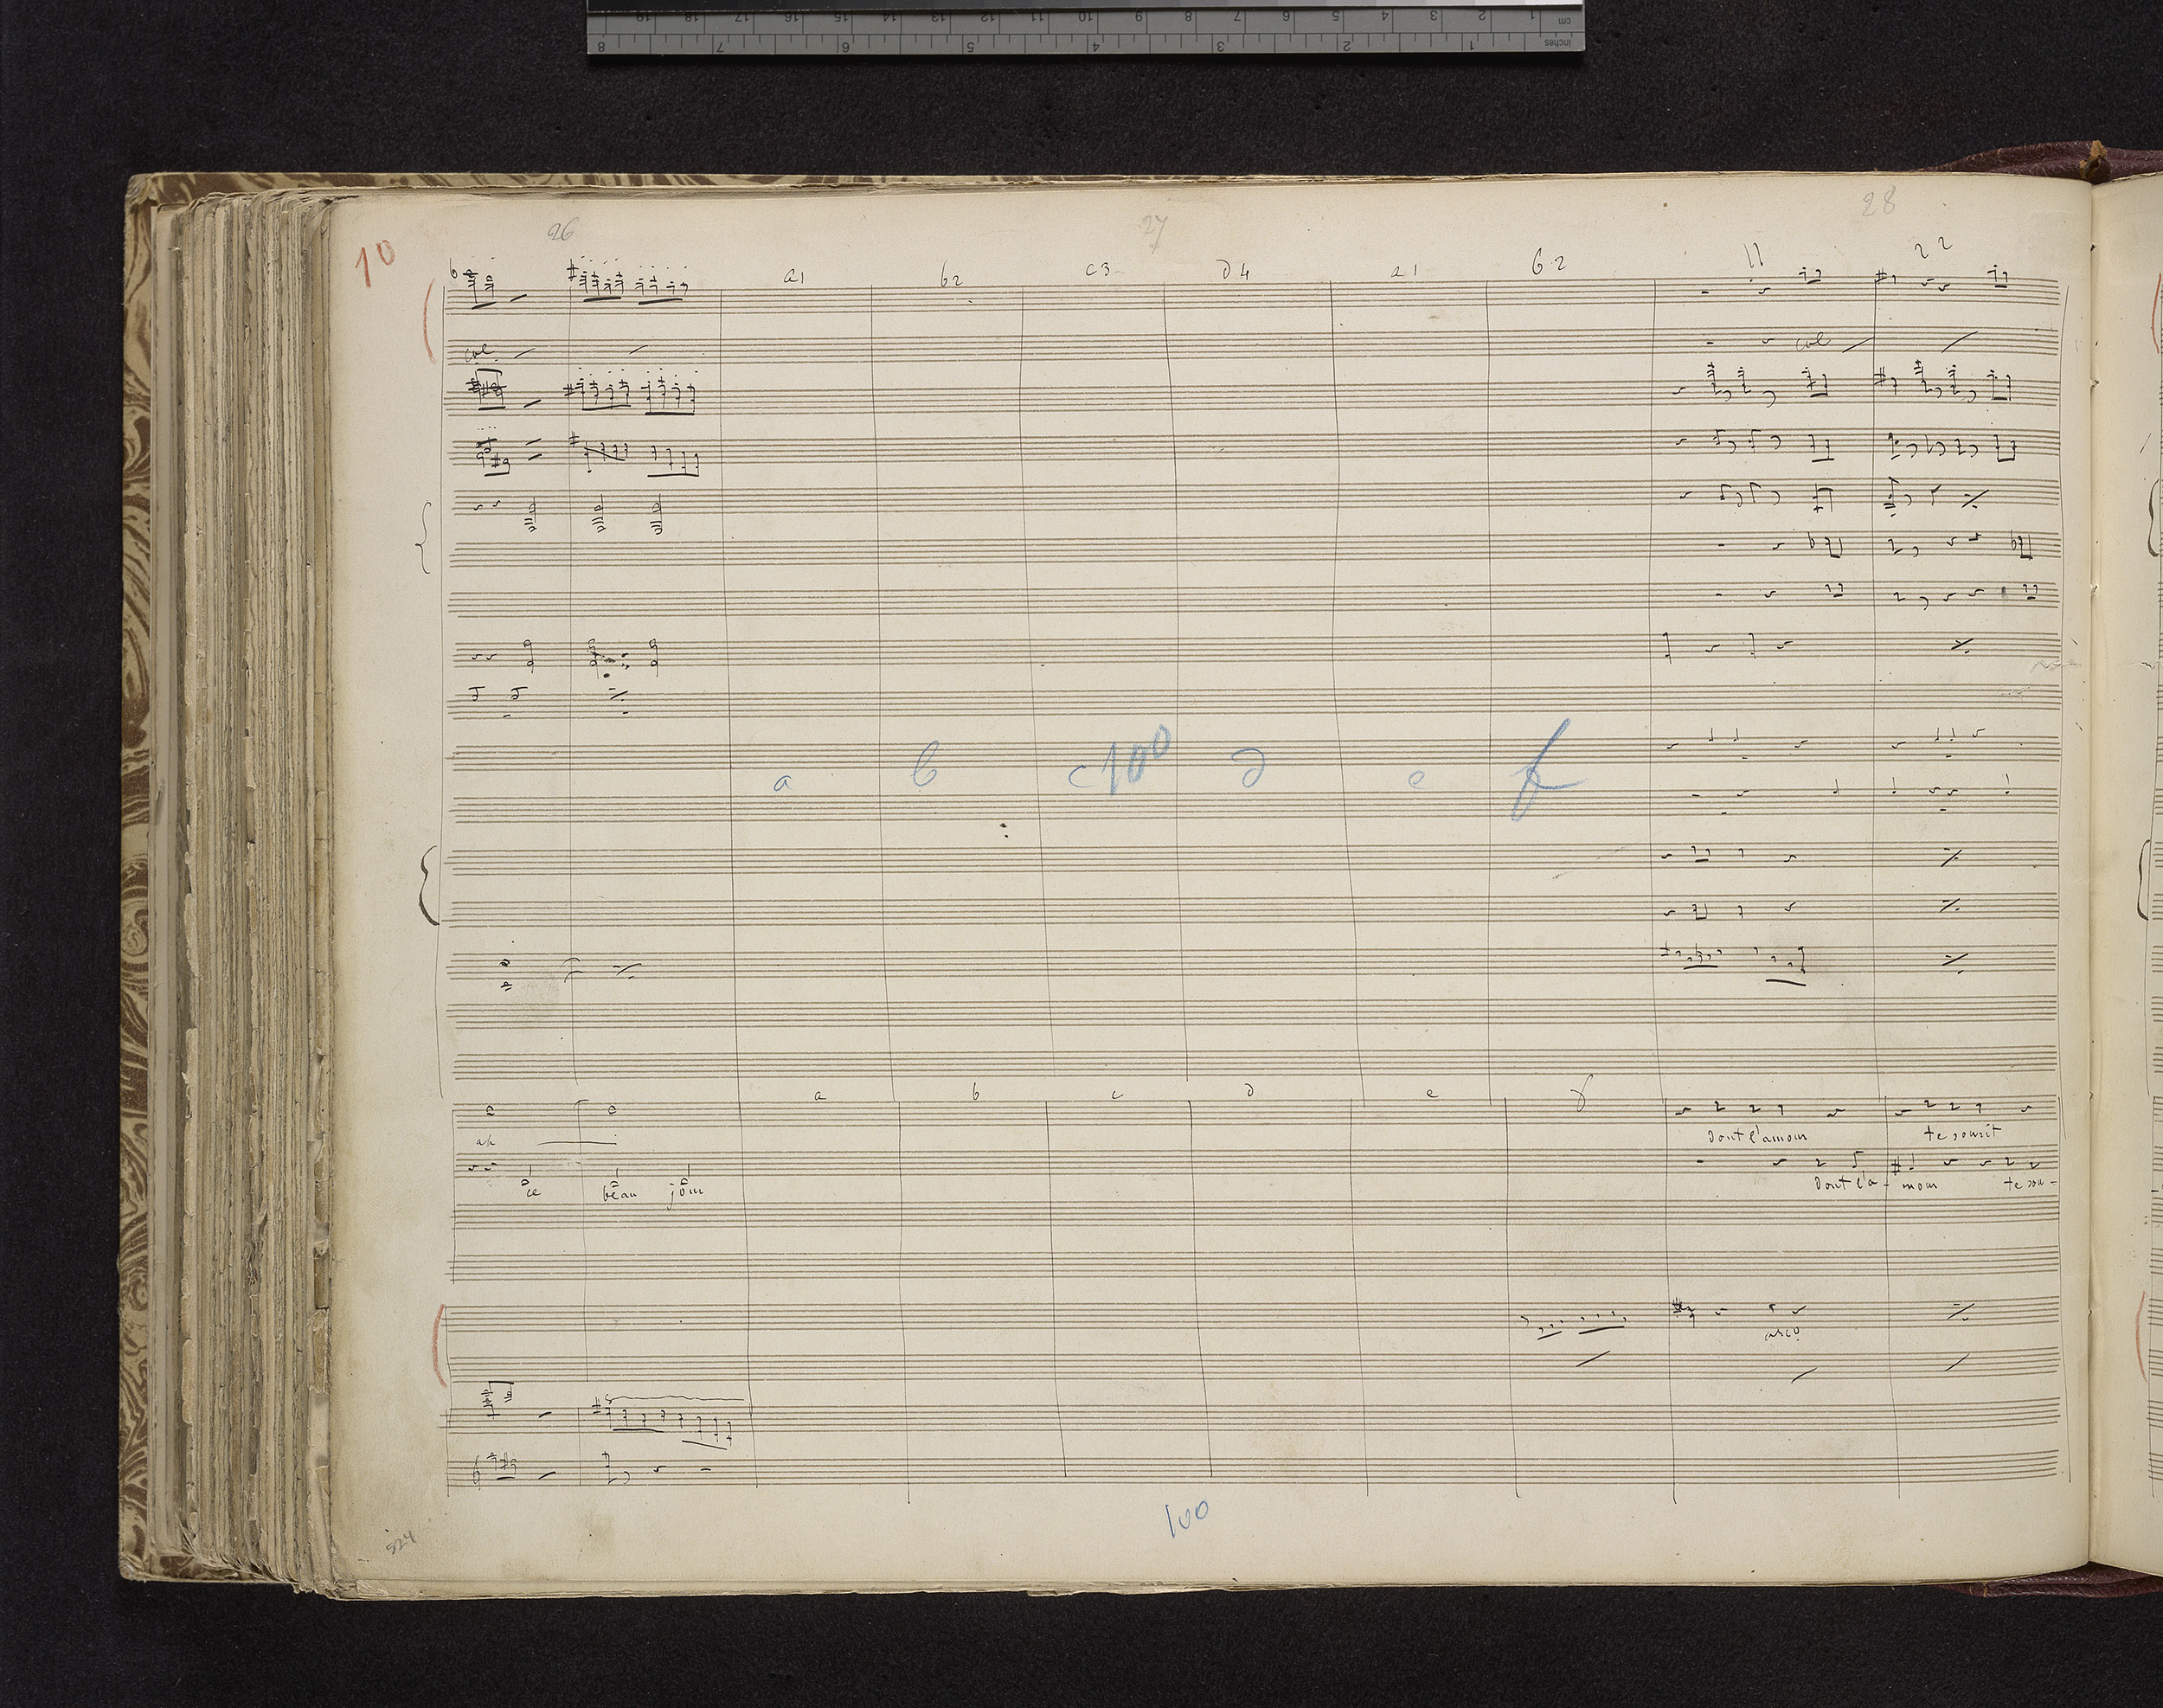 cm 1 2 3 4 5 6 7 8 9 10 11 12 13 14 15 16 17 18 19
inches 1 2 3 4 5 6 7 8
26 27 28
10
a1 b2 c3 d4 a1 b2 11 22
col
col
a b c 100 d e f
a b c d e f
ah
dont l'amour te sourit
ce beau jour
dont l'a-mour te sou-
arco
100
524